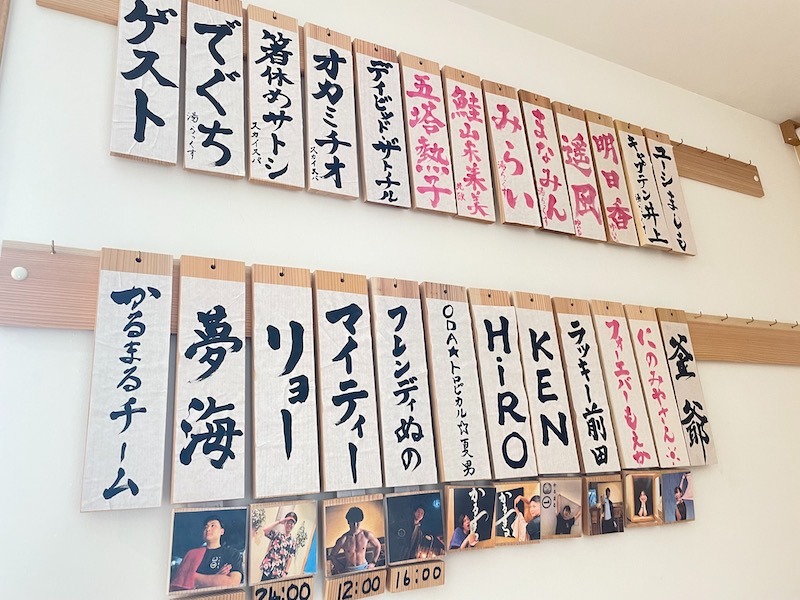 ゲスト
でぐち
湯らっくす
箸休めサトシ
スカイスパ
オカミチオ
スカイスパ
デイビッド・ザ・トーナル
五塔熱子
鮭山未来美
みらい
まなみん
遥風
明日香
キャザテン井上
ユーシましも
かるまるチーム
夢海
リョー
マイティー
フレンディぬの
ODA★トロピカル☆夏男
HiRO
KEN
ラッキー前田
フォーエバーもえか
にのみやさん
釜爺
24:00
12:00
16:00